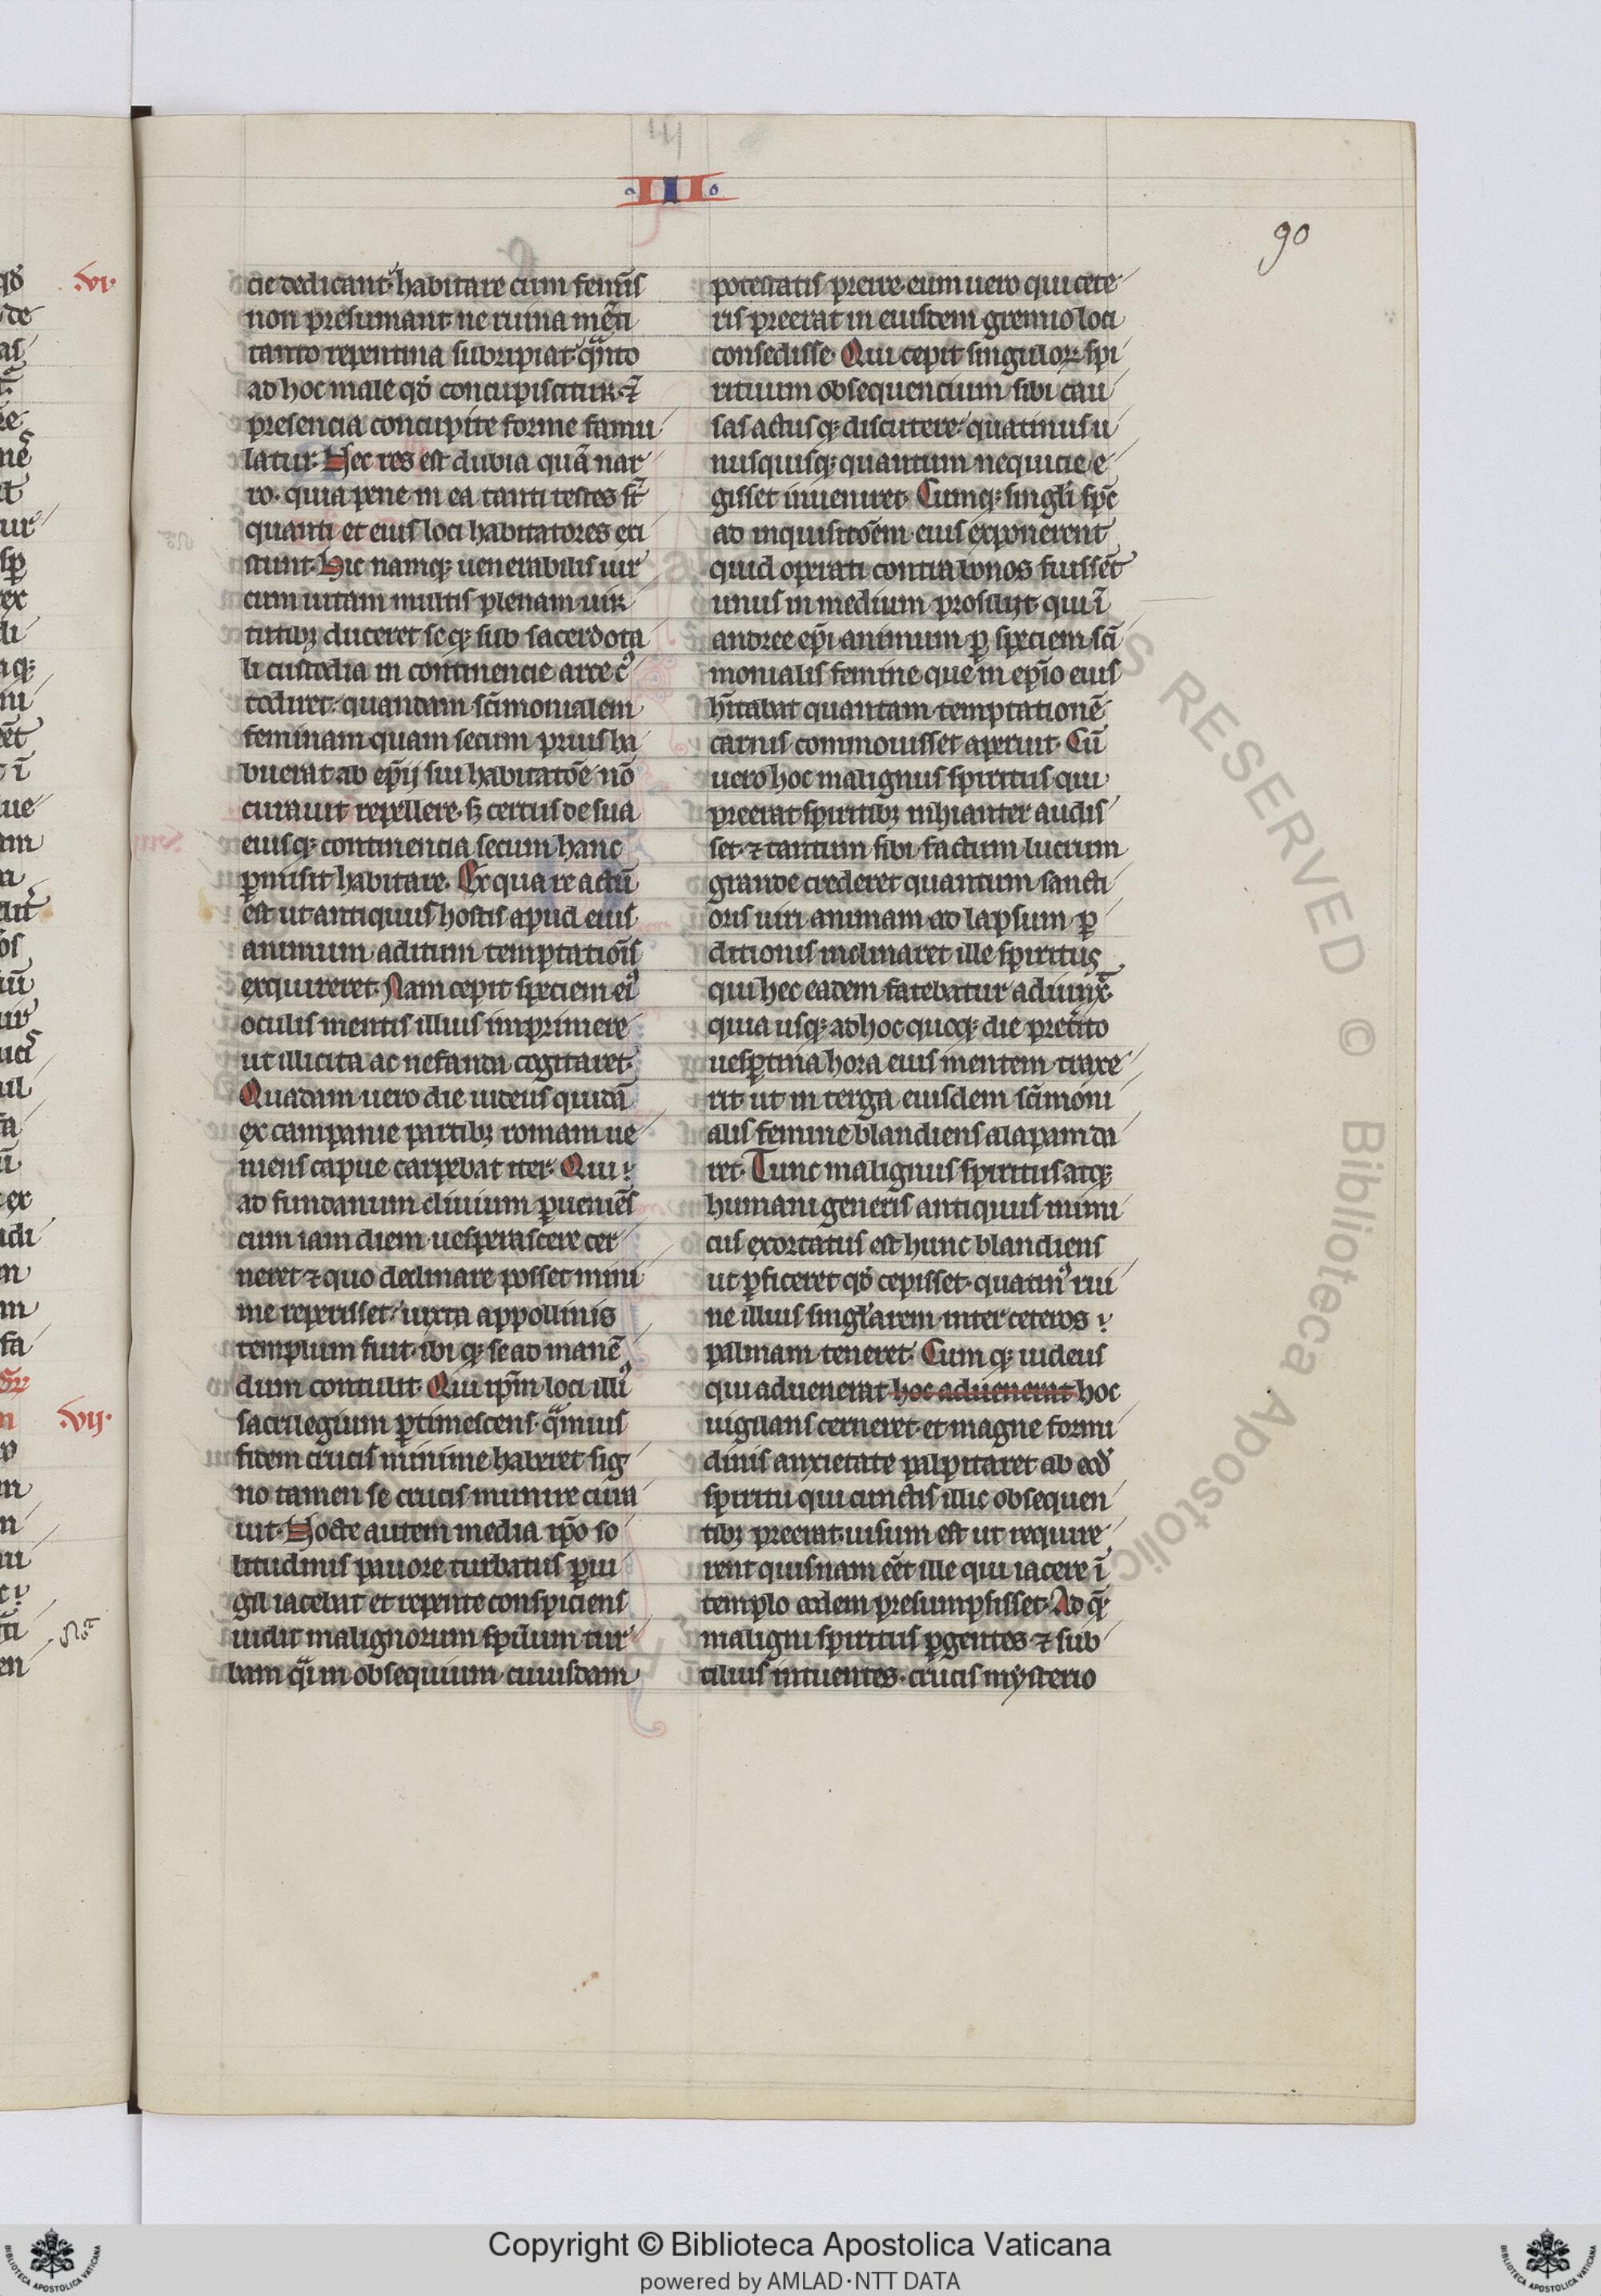 III
90
cie dedicant· habitare cum feminis
non presumant· ne ruina mẽti
tanto repentina subripiat· qᵃnto
ad hoc male qđ concupiscitur· ⁊
presencia concupite forme famu
latur· Hec res est dubia quã nar
ro· quia pene in ea tanti testes st̃
quanti et eius loci habitatores exi
stunt· Hic namqꝫ uenerabilis uir
cum uitam multis plenam uir
tutibꝫ duceret seqꝫ sub sacerdota
li custodia in continencie arce c9
todiret· quandam sc̃imonialem
feminam quam secum prius ha
buerat ab ep̃ij sui habitatõe nõ
curauit repellere· sꝫ certus de sua
eiusqꝫ continencia secum hanc
ꝑmisit habitare· Ex qua re actũ
est ut antiquus hostis apud eius
animum aditum temptatiõis
exquireret· Nam cepit speciem ei9
oculis mentis illius imprimere
ut illicita ac nefanda cogitaret·
Quadam uero die iudeus quidã
ex campanie partibꝫ romam ue
niens capue carpebat iter· Qui
ad fundanum cliuium ꝑueniẽs
cum iam diem uesperascere cer
neret ⁊ quo declinare posset mini
me reperisset· iuxta appollinis
templum fuit· ibi qꝫ se ad manẽ
dum contulit· Qui ip̃m loci illi9
sacrilegium ꝑtimescens· qᵃmuis
fidem crucis minime haberet sig
no tamen se crucis munire cura
uit· Nocte autem media ip̃o so
litudinis pauore turbatus ꝑui
gil iacebat et repente conspiciens
uidit malignorum sp̃ituum tur
bam qᵃi in obsequium cuiusdam
potestatis preire· eum uero qui cete
ris preerat in eiusdem gremio loci
consedisse· Qui cepit singuloꝝ spi
rituum obsequencium sibi cau
sas actus qꝫ discutere· quatinus u
nusquisqꝫ quantum nequicie e
gisset inueniret· Cumqꝫ singl̃i sp̃c
ad inquisitõem eius exponerent
quid operati contra bonos fuissẽt
unus in medium prosiliit· qui ĩ
andree ep̃i animum ꝑ speciem sc̃i
monialis femine que in ep̃io eius
h̃itabat quantam temptationẽ
carnis commouisset aperuit· Cũ
uero hoc malignus spiritus qui
preerat spiritibꝫ inhianter audis
set· ⁊ tantum sibi factum lucrum
grande crederet quantum sancti
oris uiri animam ad lapsum ꝑ
ditionis inclinaret ille spiritus
qui hec eadem fatebatur adiunx̃·
quia usqꝫ ad hoc quoqꝫ die pret̃ito
uesꝑtina hora eius mentem traxe
rit ut in terga eiusdem sc̃imoni
alis femine blandiens alapam da
ret· Tunc malignus spiritus atqꝫ
humani generis antiquus inimi
cus exortatus est hunc blandiens
ut ꝑficeret qđ cepisset· quatin9 rui
ne illius singl̃arem inter ceteros
palmam teneret· Cum qꝫ iudeus
qui aduenerat hoc aduenerat hoc
uigilans cerneret· et magne formi
dinis anxietate palpitaret ab eod̃
spiritu qui cunctis illic obsequen
tibꝫ preerat· uisum est ut require
rent quisnam eẽt ille qui iacere ĩ
templo eodem presumpsisset· Ad q̃·
maligni spiritus ꝑgentes ⁊ sub
tilius intuentes· crucis mysterio
.vi.
.vij.
ALL RIGHTS RESERVED © Biblioteca Apostolica
Copyright © Biblioteca Apostolica Vaticana
powered by AMLAD·NTT DATA